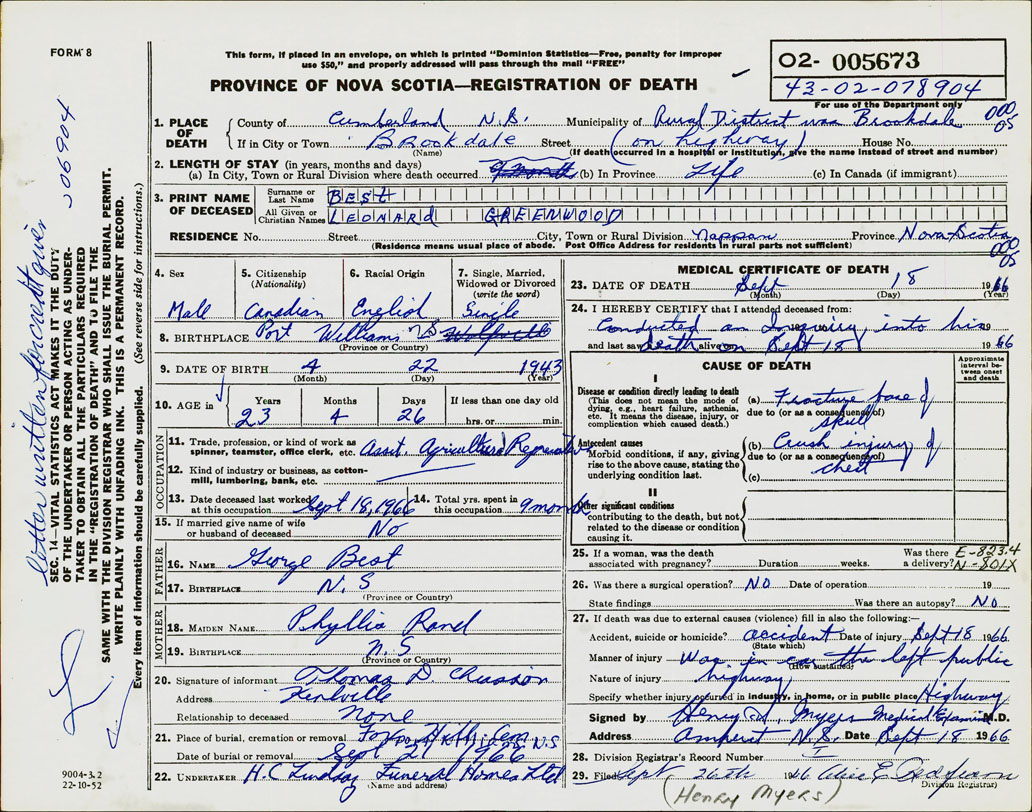 FORM 8
This form, if placed in an envelope, on which is printed "Dominion Statistics—Free, penalty for improper
use $50," and properly addressed will pass through the mail "FREE"
PROVINCE OF NOVA SCOTIA—REGISTRATION OF DEATH
02- 005673
43-02-078904
For use of the Department only
000
05
1. PLACE OF DEATH
County of Cumberland N.S. Municipality of Rural District was Brookdale
If in City or Town Brookdale Street (on highway) House No.
(Name) (If death occurred in a hospital or institution, give the name instead of street and number)
2. LENGTH OF STAY (in years, months and days)
(a) In City, Town or Rural Division where death occurred 9 months (b) In Province Life (c) In Canada (if immigrant)
3. PRINT NAME OF DECEASED
Surname or Last Name BEST
All Given or Christian Names LEONARD GREENWOOD
RESIDENCE No. Street City, Town or Rural Division Nappan Province Nova Scotia
(Residence means usual place of abode. Post Office Address for residents in rural parts not sufficient)
000
05
4. Sex Male
5. Citizenship (Nationality) Canadian
6. Racial Origin English
7. Single, Married, Widowed or Divorced (write the word) Single
8. BIRTHPLACE Port Williams NS Wolfville
(Province or Country)
9. DATE OF BIRTH 4 22 1943
(Month) (Day) (Year)
10. AGE in Years Months Days If less than one day old
23 4 26 hrs. or min.
OCCUPATION
11. Trade, profession, or kind of work as spinner, teamster, office clerk, etc. Asst Agricultural Representative
12. Kind of industry or business, as cotton-mill, lumbering, bank, etc.
13. Date deceased last worked at this occupation Sept 18, 1966
14. Total yrs. spent in this occupation 9 months
15. If married give name of wife or husband of deceased No
FATHER
16. NAME George Best
17. BIRTHPLACE N.S
(Province or Country)
MOTHER
18. MAIDEN NAME Phyllis Rand
19. BIRTHPLACE N.S
(Province or Country)
20. Signature of informant Thomas D.
Address Kentville
Relationship to deceased None
21. Place of burial, cremation or removal N.S
Date of burial or removal Sept 21 1966
22. UNDERTAKER H.C Lindsay Funeral Homes Ltd
(Name and address)
MEDICAL CERTIFICATE OF DEATH
23. DATE OF DEATH Sept 18 1966
(Month) (Day) (Year)
24. I HEREBY CERTIFY that I attended deceased from:
Conducted an Inquiry into his 19
and last saw alive on death on Sept 18 1966
CAUSE OF DEATH
Approximate interval between onset and death
I
Disease or condition directly leading to death
(This does not mean the mode of dying, e.g., heart failure, asthenia, etc. It means the disease, injury, or complication which caused death.)
(a) Fracture base of skull
due to (or as a consequence of)
Antecedent causes
Morbid conditions, if any, giving rise to the above cause, stating the underlying condition last.
(b) Crush injury of chest
due to (or as a consequence of)
(c)
II
Other significant conditions
contributing to the death, but not related to the disease or condition causing it.
25. If a woman, was the death associated with pregnancy? Duration weeks. Was there a delivery?
E-823.4
N-801X
26. Was there a surgical operation? NO Date of operation 19
State findings Was there an autopsy? No
27. If death was due to external causes (violence) fill in also the following:—
Accident, suicide or homicide? accident Date of injury Sept 18 1966
(State which)
Manner of injury Was in car the left public
(How sustained)
Nature of injury highway
Specify whether injury occurred in industry, in home, or in public place Highway
Signed by Henry Myers Medical Examiner M.D.
Address Amherst N.S. Date Sept 18 1966
28. Division Registrar's Record Number
29. Filed Sept. 26th 1966 Alice E.
Division Registrar)
(HENRY MYERS)
letter written for creditown -06904
SEC. 14—VITAL STATISTICS ACT MAKES IT THE DUTY
OF THE UNDERTAKER OR PERSON ACTING AS UNDER-
TAKER TO OBTAIN ALL THE PARTICULARS REQUIRED
IN THE "REGISTRATION OF DEATH" AND TO FILE THE
SAME WITH THE DIVISION REGISTRAR WHO SHALL ISSUE THE BURIAL PERMIT.
WRITE PLAINLY WITH UNFADING INK. THIS IS A PERMANENT RECORD.
Every item of information should be carefully supplied. (See reverse side for instructions.)
9004-3.2
22-10-52